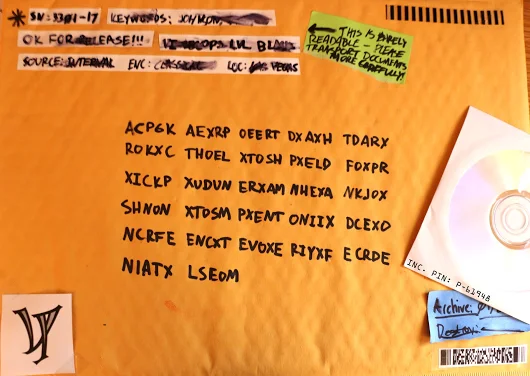 SN: 3301-17 KEYWORDS:
OK FOR RELEASE!!!
SOURCE: INTERVAL ENC: LOC: LAS VEGAS
THIS IS BARELY
READABLE - PLEASE
TRANSPORT DOCUMENTS
MORE CAREFULLY!
ACPGK AEXRP OEERT DXAXH TDARX
ROKXC THOEL XTOSH PXELD FOXPR
XICKP XUDUN ERXAM NHEXA NKJOX
SHNON XTOSM PXENT ONIIX DCEXO
NCRFE ENCXT EVOXE RIYXF ECRDE
NIATX LSEOM
INC. PIN: P-61948
Archive: